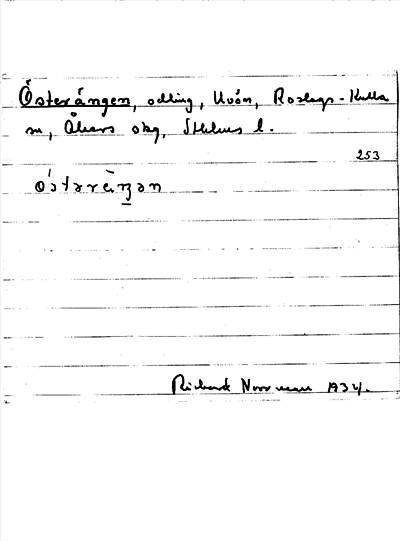 Österängen, odling, Uvön, Roslags-Kulla
sn, Åkers skg, Sthlms l.
253
ö́stərèŋən
Richard Norrman 1934.